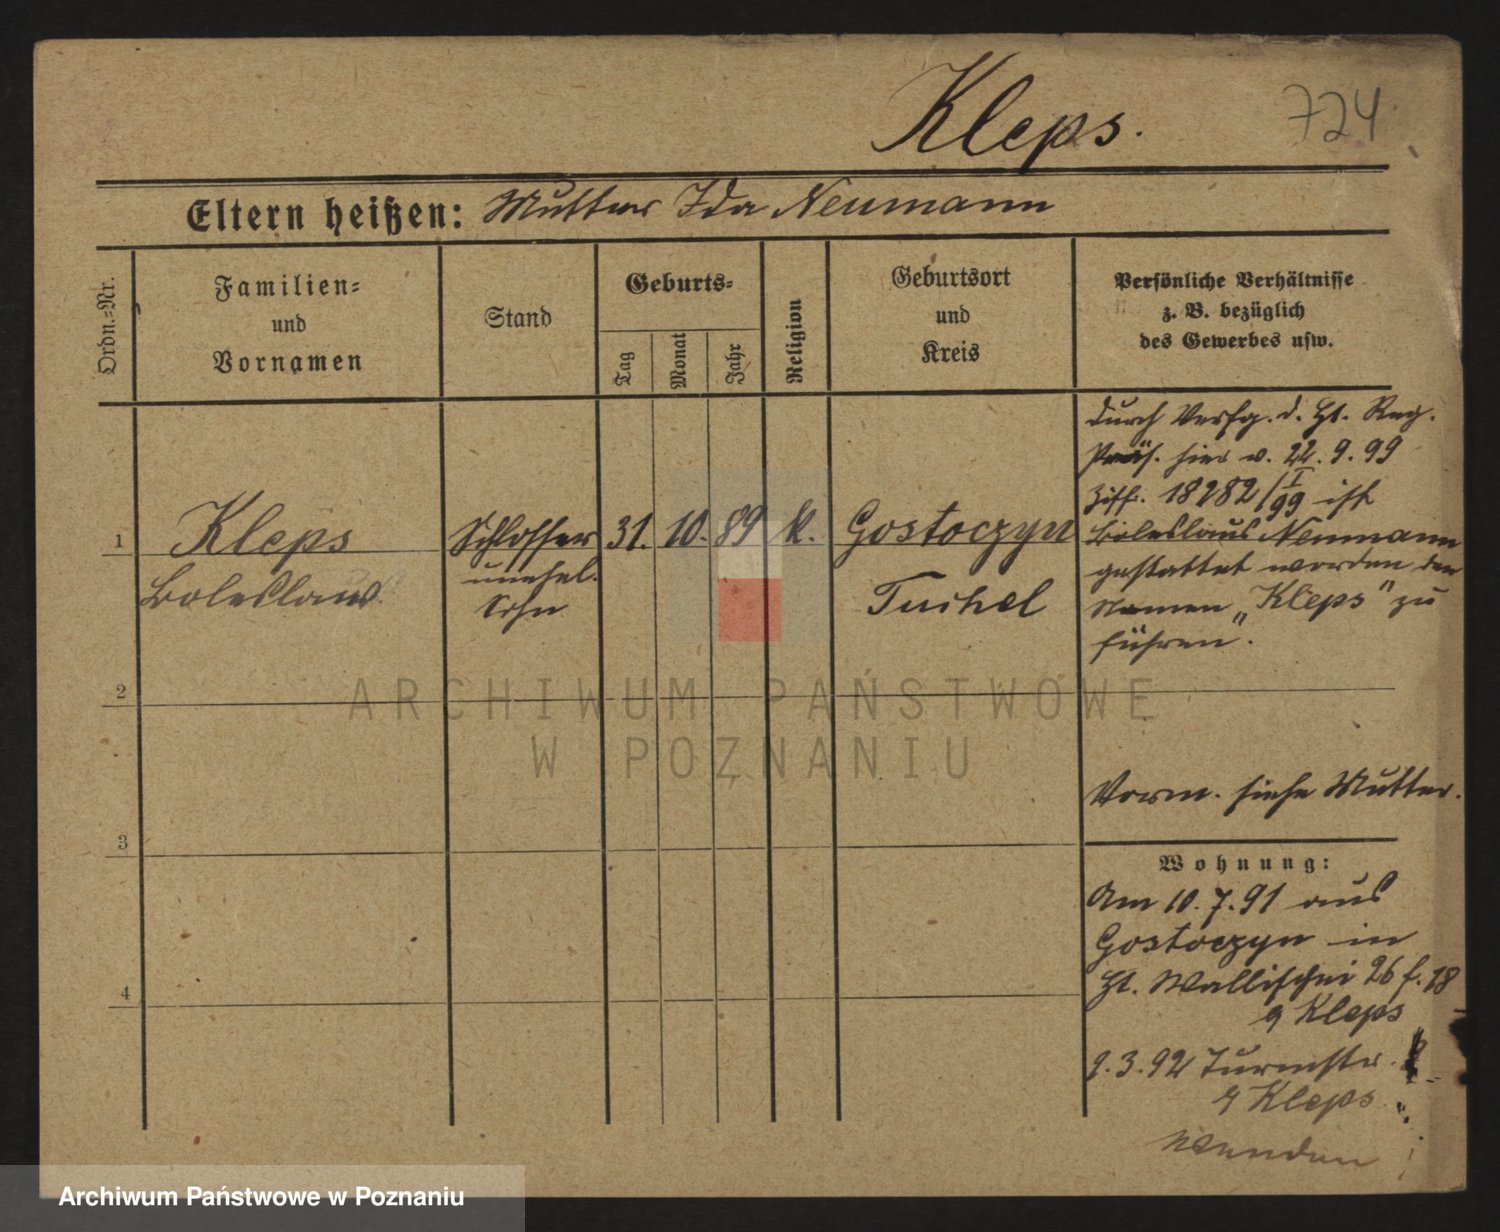 Kleps.
724
Eltern heißen: Mutter Ida Neumann
Ordn.=Nr.
Familien=
und
Vornamen
Stand
Geburts=
Tag
Monat
Jahr
Religion
Geburtsort
und
Kreis
Persönliche Verhältnisse
z. B. bezüglich
des Gewerbes usw.
1
Kleps
Boleslaus
Schlosser
unehel.
Sohn
31.
10.
89
k.
Gostoczyn
Tuchel
Durch Verfg. d. H. Reg.
Präs. hier v. 22.9.99
18282/I 99 ist
Boleslaus Neumann
gestattet worden den
Namen „Kleps" zu
führen".
2
3
4
Vorm. siehe Mutter.
Wohnung:
Am 10.7.91 aus
Gostoczyn in
Wallischei 26 f. 18
Kleps
9.3.92 Turmstr.
Kleps
wenden
ARCHIWUM PAŃSTWOWE
W POZNANIU
Archiwum Państwowe w Poznaniu